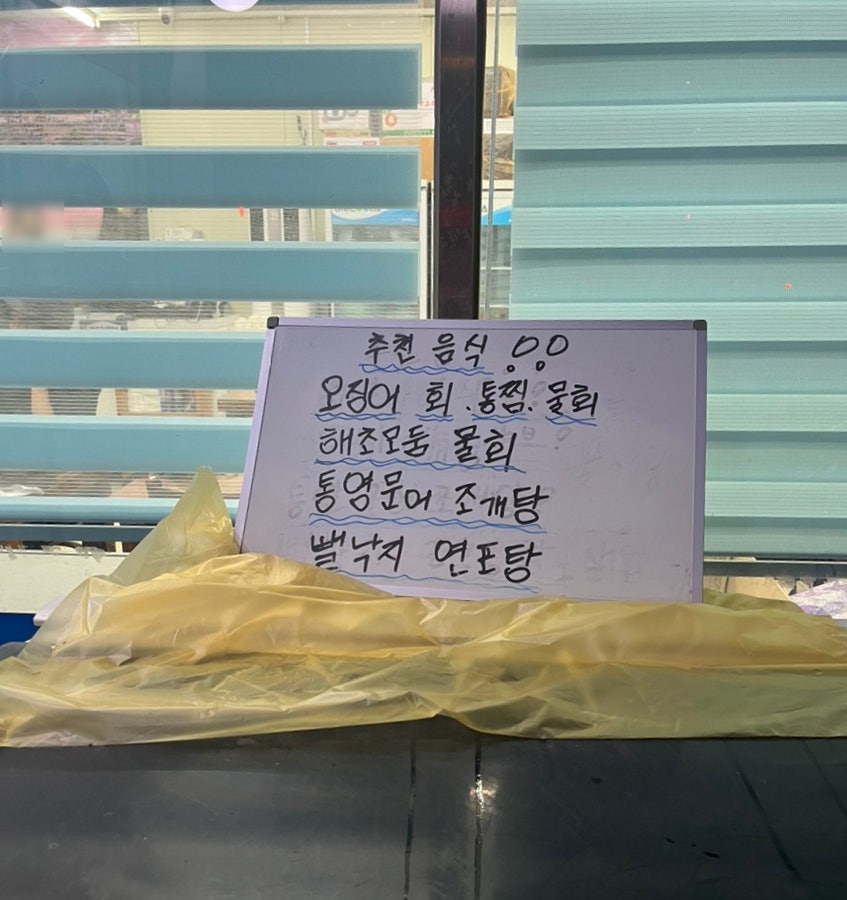 추천 음식 !!
오징어 회.통찜.물회
해초모둠 물회
통영문어 조개탕
뻘낙지 연포탕